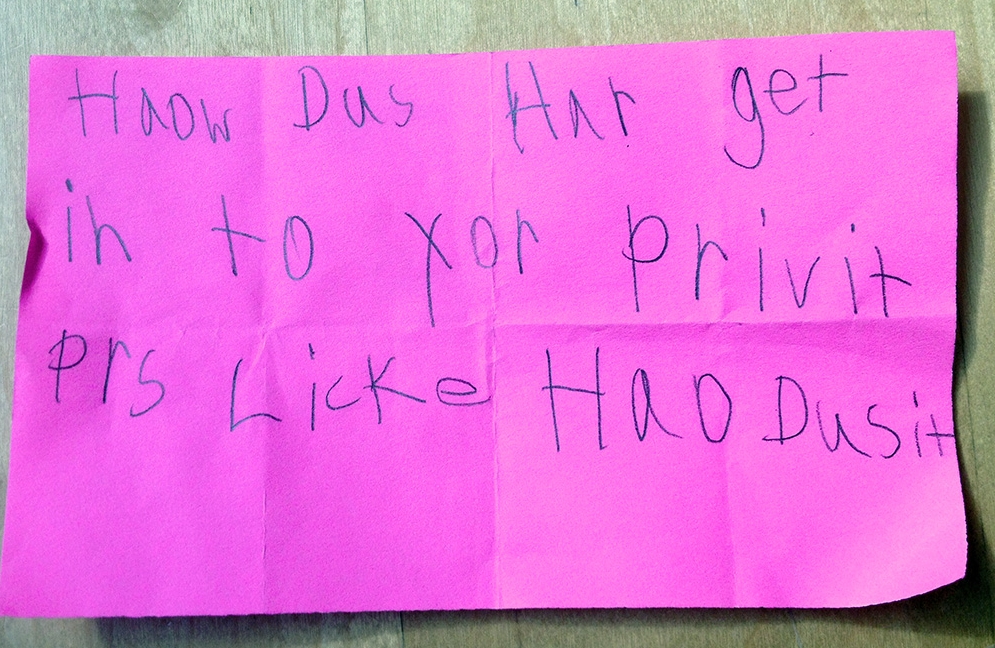 Haow Dus Har get
in to yor privit
prs Licke Hao Dusit